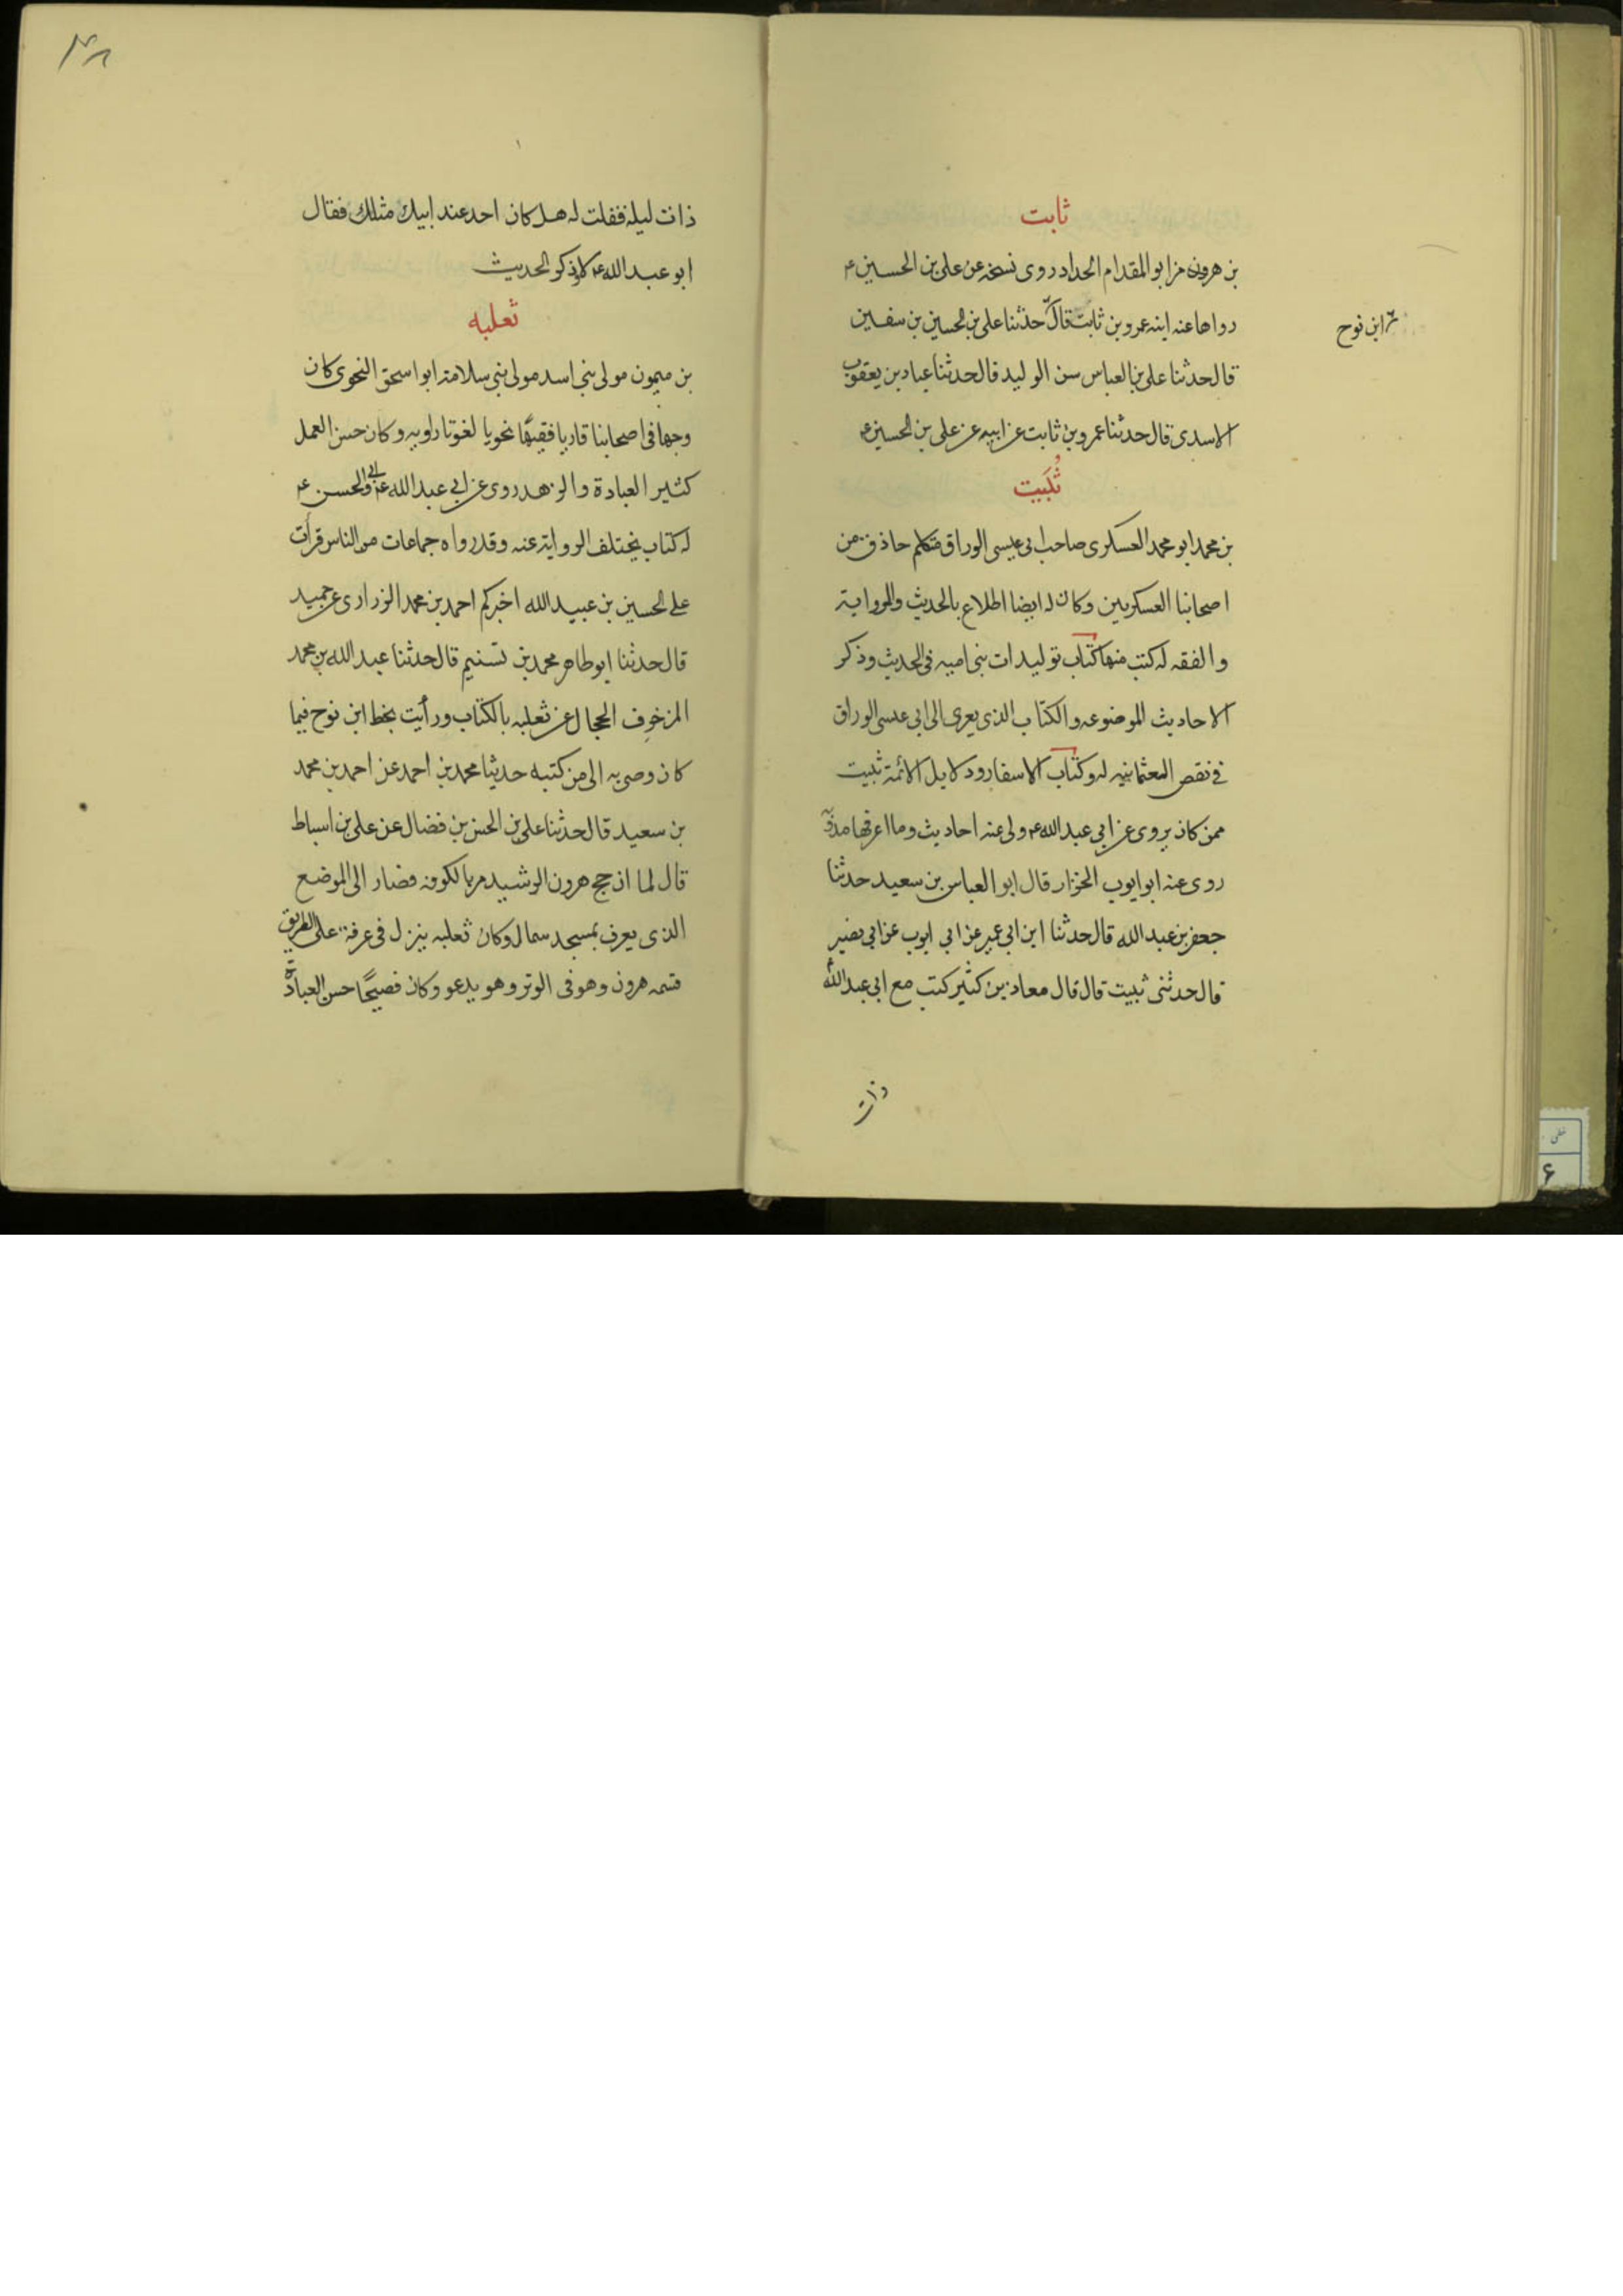 ثابت
بن هرمز ابو المقدام الحداد روى نسخه عن على بن الحسين ع
رواها عنه ابنه عمرو بن ثابت قال حدثنا على بن الحسين بن سفين
ابن نوح
قال حدثنا على بن العباس بن الوليد قال حدثنا عباد بن يعقوب
الاسدى قال حدثنا عمرو بن ثابت عن ابيه عن على بن الحسين ع
ثُبَيت
بن محمد ابو محمد العسكرى صاحب ابى عيسى الوراق متكلم حاذق من
اصحابنا العسكريين وكان له ايضا اطلاع بالحديث والرواية
والفقه له كتب منها كتاب توليدات بنى اميه فى الحديث وذكر
الاحاديث الموضوعه والكتاب الذى يعرى الى ابى عيسى الوراق
فى نقص العثمانيه له وكتاب الاسفار ودلايل الائمة ثبيت
ممن كان يروى عن ابى عبد الله ع ولى عنه احاديث وما اعرفها مدونة
روى عنه ابو ايوب الخزار قال ابو العباس بن سعيد حدثنا
جعفر بن عبد الله قال حدثنا ابن ابى عمير عن ابى ايوب عن ابى بصير
قال حدثنى ثبيت قال قال معاد بن كثير كنت مع ابى عبد الله ع
ذات
ذات ليله فقلت له هل كان احد عند ابيك مثلك فقال
ابو عبد الله ع لا وذكر الحديث
ثعلبه
بن ميمون مولى بنى اسد مولى بنى سلامة ابو اسحق النحوى كان
وجها فى اصحابنا قاريا فقيهًا نحويا لغويا راويه وكان حسن العمل
كثير العبادة والزهد روى عن ابى عبد الله ع وابى الحسن ع
له كتاب يختلف الرواية عنه وقد رواه جماعات من الناس قرأت
على الحسين بن عبيد الله اخبركم احمد بن محمد الزرارى عن حميد
قال حدثنا ابو طاهر محمد بن تسنيم قال حدثنا عبد الله بن محمد
المزخرف الحجال عن ثعلبه بالكتاب ورأيت بخط ابن نوح فيما
كان وصى به الى من كتبه حدثنا محمد بن احمد عن احمد بن محمد
بن سعيد قال حدثنا على بن الحسن بن فضال عن على بن اسباط
قال لما ان حج هرون الرشيد مر بالكوفه فصار الى الموضع
الذى يعرف بمسجد سمال وكان ثعلبه ينزل فى غرفة على الطريق
فسمعه هرون وهو فى الوتر وهو يدعو وكان فصيحًا حسن العبادة